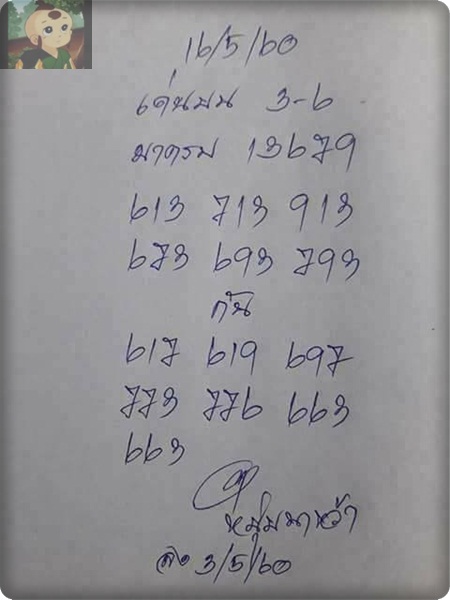 16/5/60
เด่นบน 3-6
มาครบ 13679
613 713 913
673 693 793
กัน
617 619 697
773 776 663
663
หนุ่มนาหว้า
ลง 3/5/60